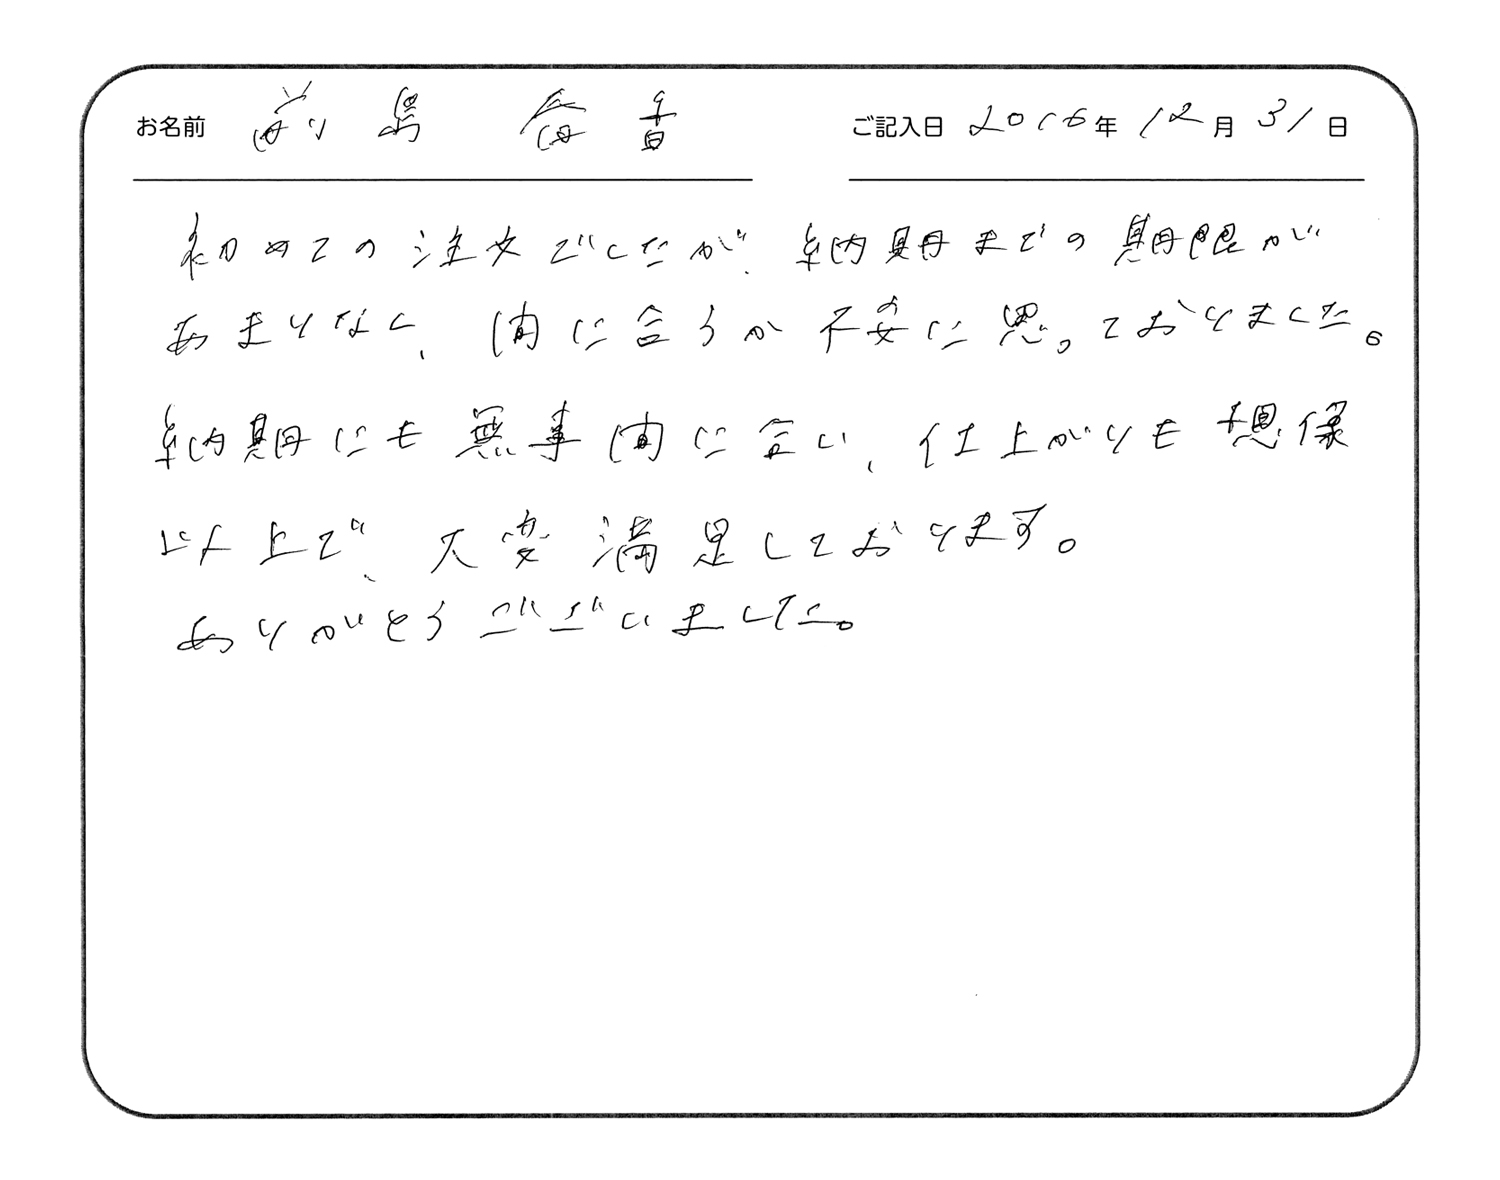 お名前 前島 春香 ご記入日 2016年 12月 31日
初めての注文でしたが、納期までの期限が
あまりなく、間に合うか不安に思っておりました。
納期にも無事間に合い、仕上がりも想像
以上で、大変満足しております。
ありがとうございました。